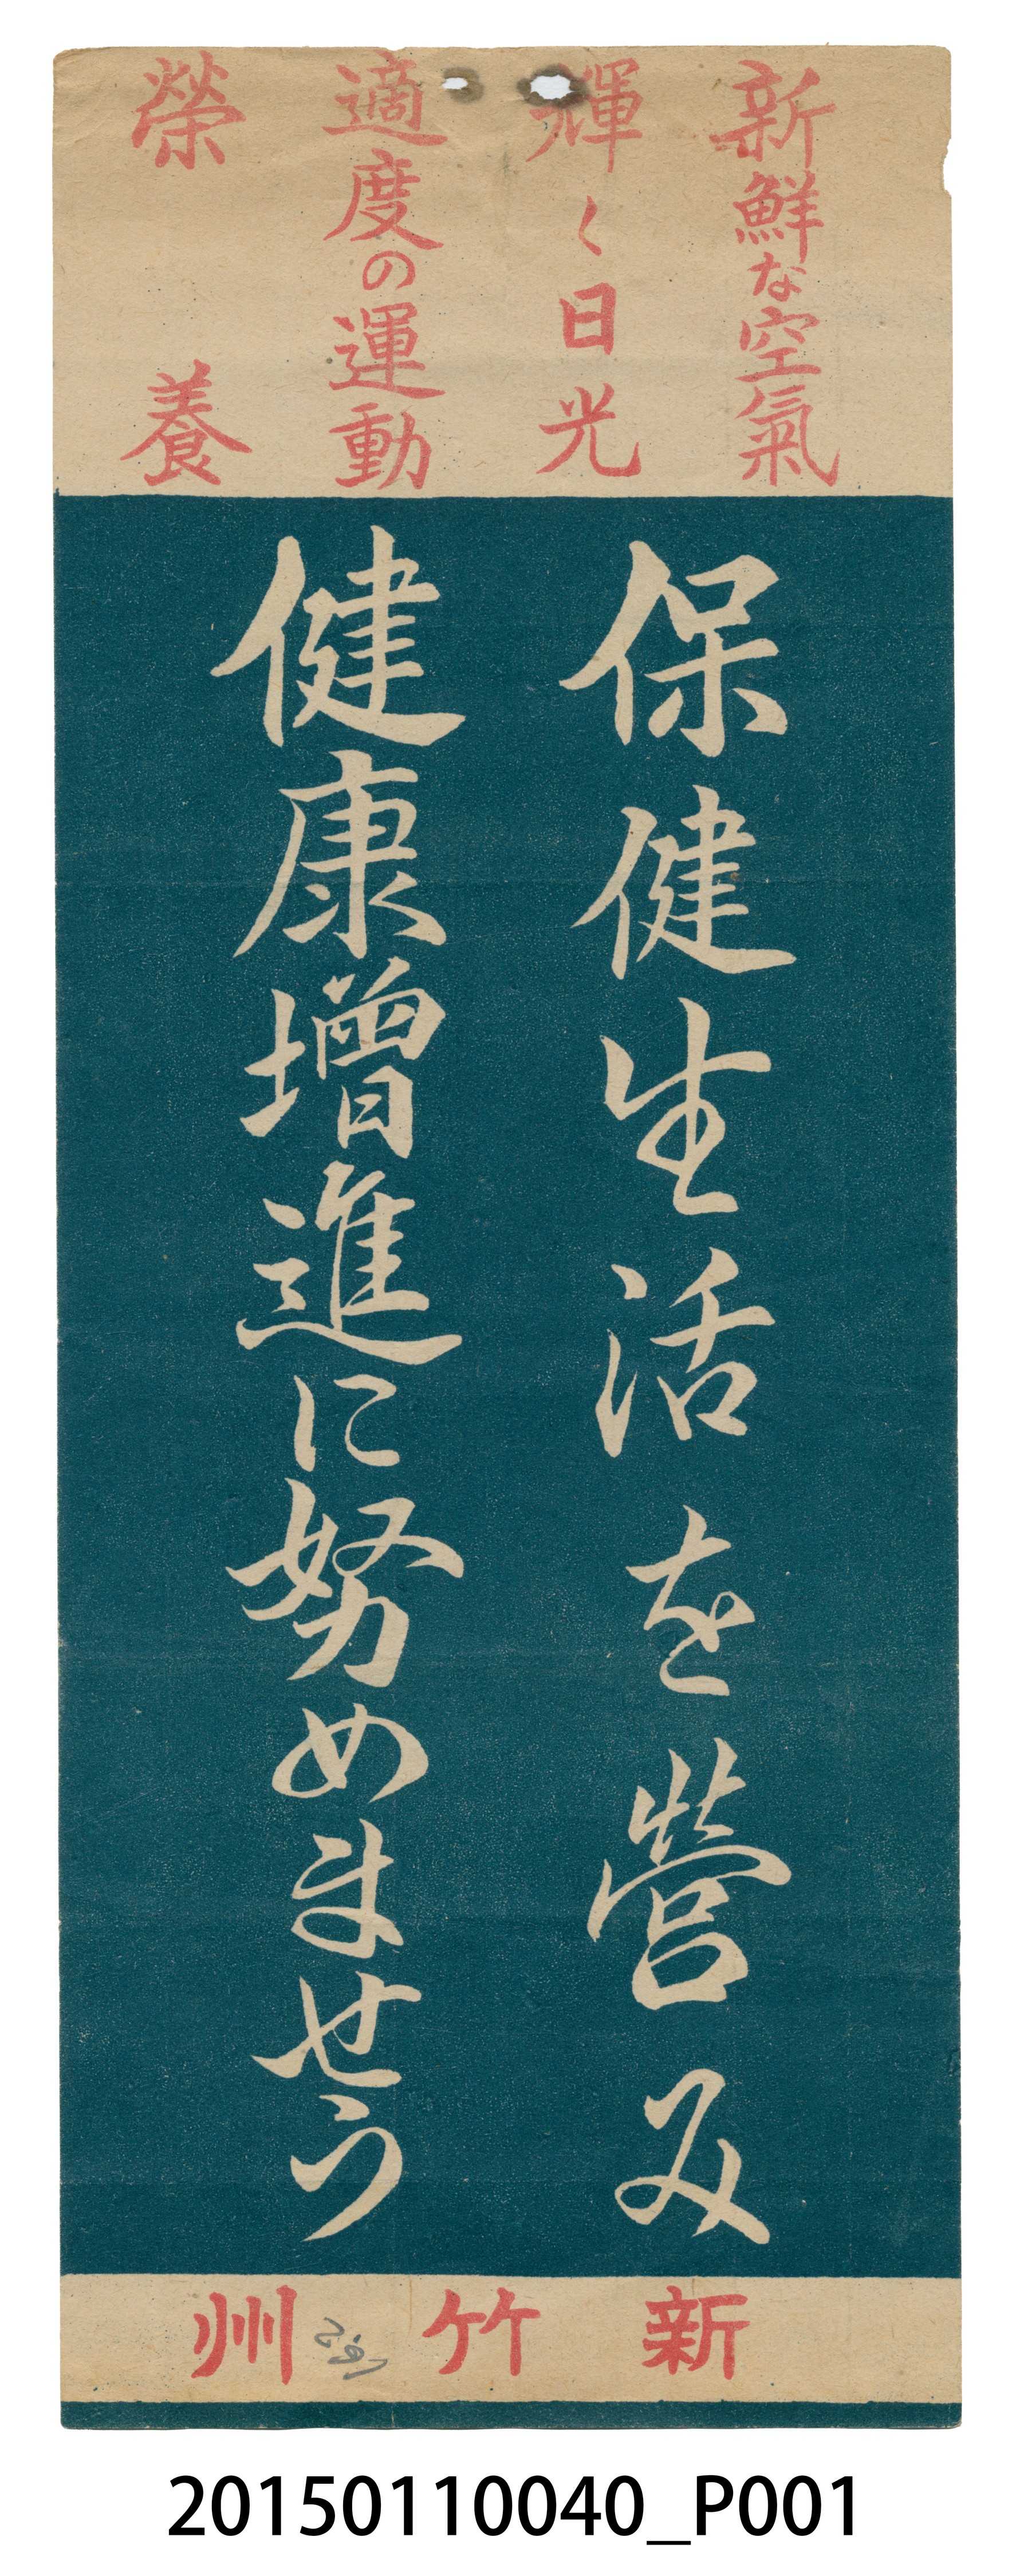 新鮮な空氣
輝く日光
適度の運動
榮養
保健生活を營み
健康增進に努めませう
新竹州
20150110040_P001